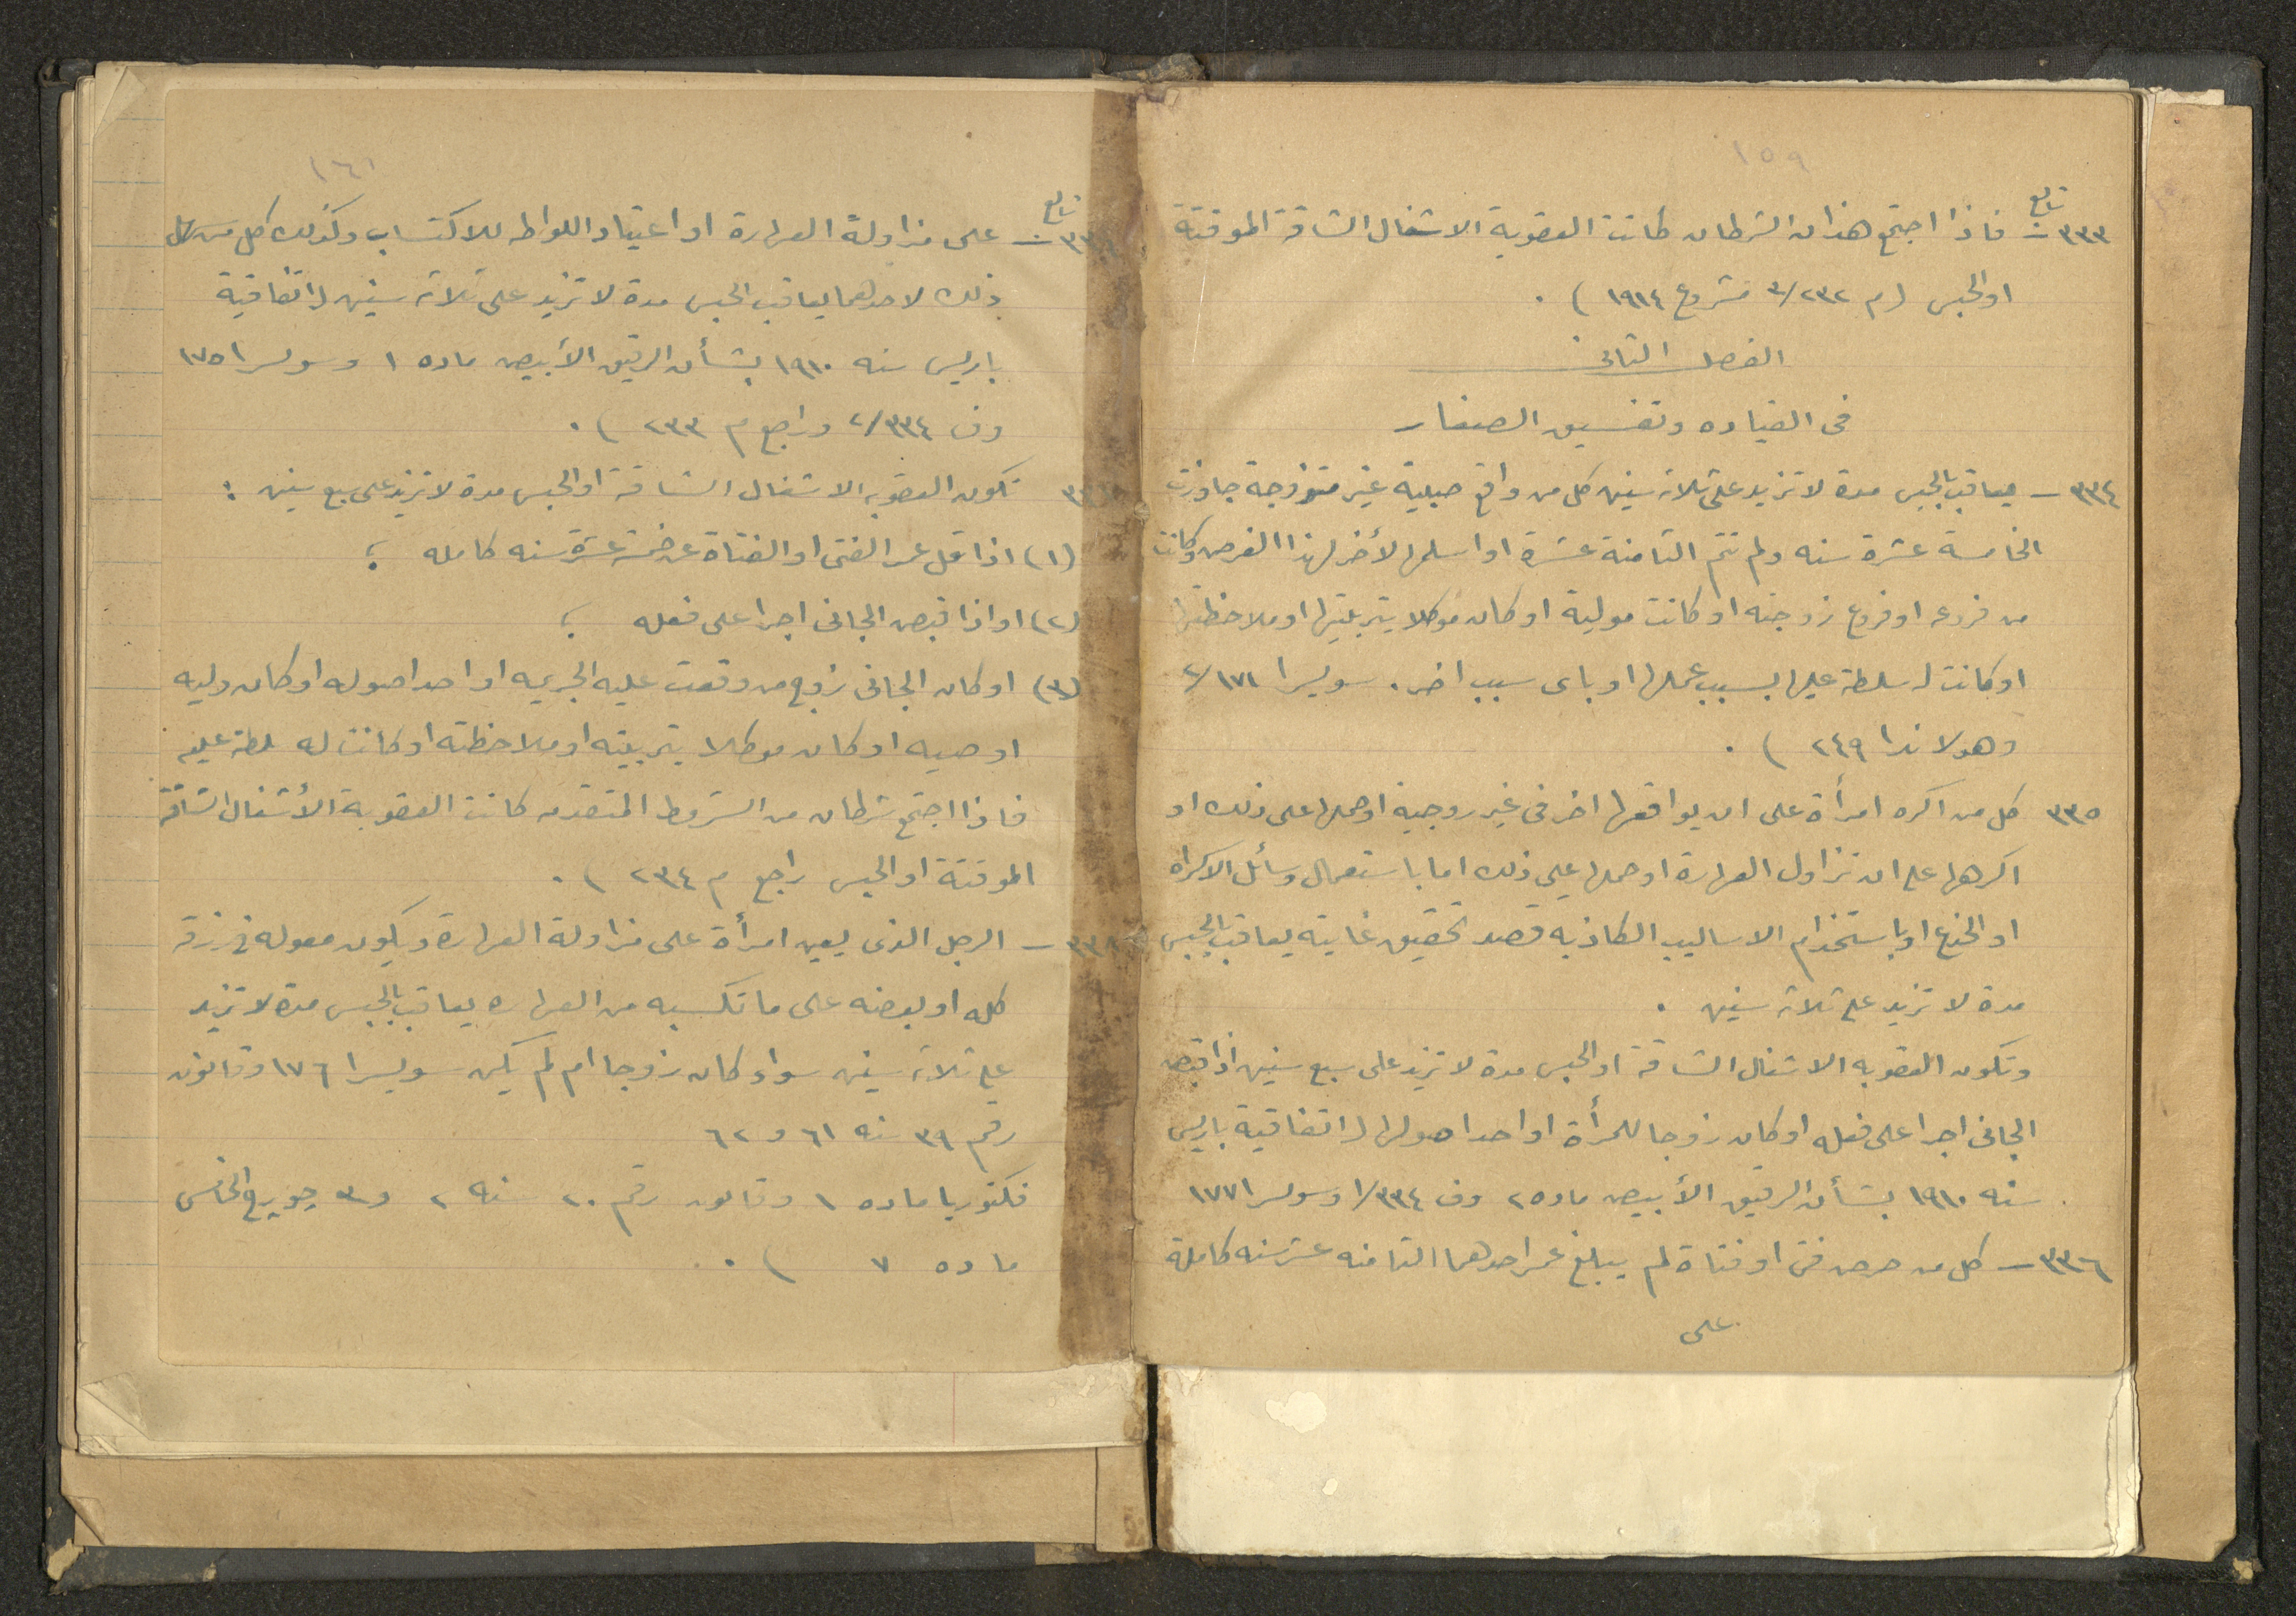 ١٥٩
تابع
٣٣٣ – فاذا اجتمع هذان الشرطان كانت العقوبة الاشغال الشاقة الموقتة
او الحبس (م ٢٣٢/٣ مشروع ١٩١٤) .
الفصل الثانى
فى القياده وتفسيق الصغار
٣٣٤ – يعاقب بالحبس مدة لا تزيد على ثلاثة سنين كل من واقع صبية غير متزوجة جاوزت
الخامسة عشرة سنه ولم تتم الثامنة عشرة او اسلمها لأخر لهذا الغرض وكانت
من فروعه او فروع زوجته او كانت موليه او كان موكلا بتربيتها او ملاحظتها
او كانت له سلطة عليها بسبب عملها او باى سبب اخر . سويسرا ١٧١/٢
وهولاندا ٢٤٩ ) .
٣٣٥ كل من اكره امرأة على ان يواقعها اخر فى غير زوجية او حملها على ذلك او
اكرهها على ان تزاول العهارة او حملها على ذلك اما باستعمال وسائل الاكراه
او الخدع او باستخدام الاساليب الكاذبه قصد تحقيق غايته يعاقب بالحبس
مدة لا تزيد على ثلاثة سنين .
وتكون العقوبه الاشغال الشاقة او الحبس مدة لا تزيد على سبع سنين اذا قبض
الجانى اجرا على فعله او كان زوجا للمرأة او احد اصولها ( اتفاقية باريس
سنه ١٩١٠ بشأن الرقيق الأبيض ماده ٢ وف ٣٣٤/١ وسويسرا ١٧٧
٣٣٦ – كل من حرض فتى او فتاة لم يبلغ عمر احدهما الثامنه عشر سنه كاملة
على
١٦١
تابع
٣٣٦ – على مزاولة العهارة او اعتياد اللواط للاكتساب وكذلك كل من سهل
ذلك لاحدهما يعاقب بالحبس مدة لا تزيد على ثلاثة سنين ( اتفاقية
باريس سنه ١٩١٠ بشأن الرقيق الأبيض ماده ١ وسويسرا ١٧٥
وف ٣٣٤/٢ وراجع م ٢٣٣ ) .
تكون العقوبه الاشغال الشاقة او الحبس مدة لا تزيد على سبع سنين :
(١) اذا قل عمر الفتى او الفتاة عن خمسة عشرة سنه كامله ؛
(٢) او اذا قبض الجانى اجرا على فعله ؛
(٣) او كان الجانى زوج من وقعت عليه الجريمه او احد اصوله او كان وليه
او وصيه او كان موكلا بتربيته او ملاحظته او كانت له سلطة عليه
فاذا اجتمع شرطان من الشروط المتقدمه كانت العقوبة الأشغال الشاقة
الموقتة او الحبس راجع م ٢٣٤ ) .
٣٣٨ – الرجل الذى يعين امرأة على مزاولة العهارة ويكون معوله فى رزقه
كله او بعضه على ما تكسبه من العهاره يعاقب بالحبس مدة لا تزيد
على ثلاثة سنين سواء كان زوجا ام لم يكن سويسرا ١٧٦ وقانون
رقم ٣٩ سنه ٦١ و ٦٢
فكتوريا ماده ١ وقانون رقم ٢٠ سنه ٢ و ٣ جورج الخامس
ماده ٧ ) .